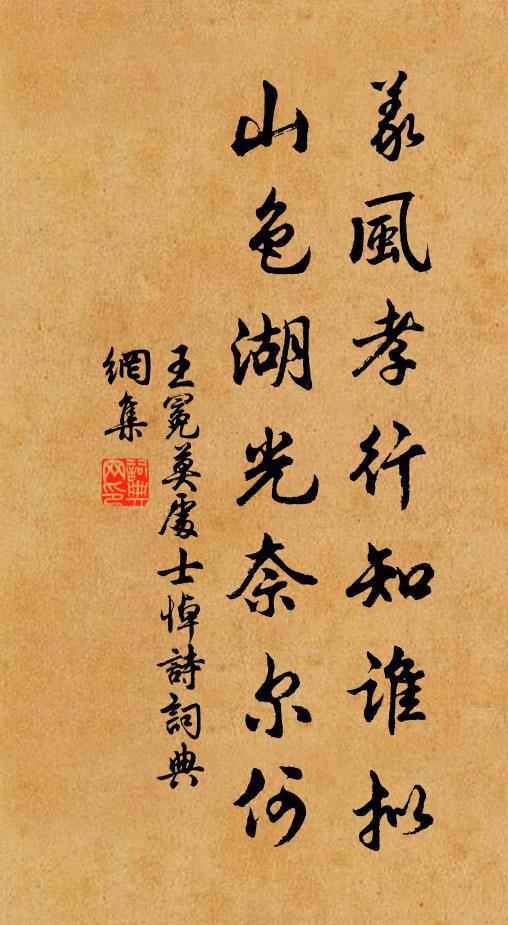 義風孝行知誰拟
山色湖光奈尔何
王冕莫處士悼詩詞典
網集
詞典
网印